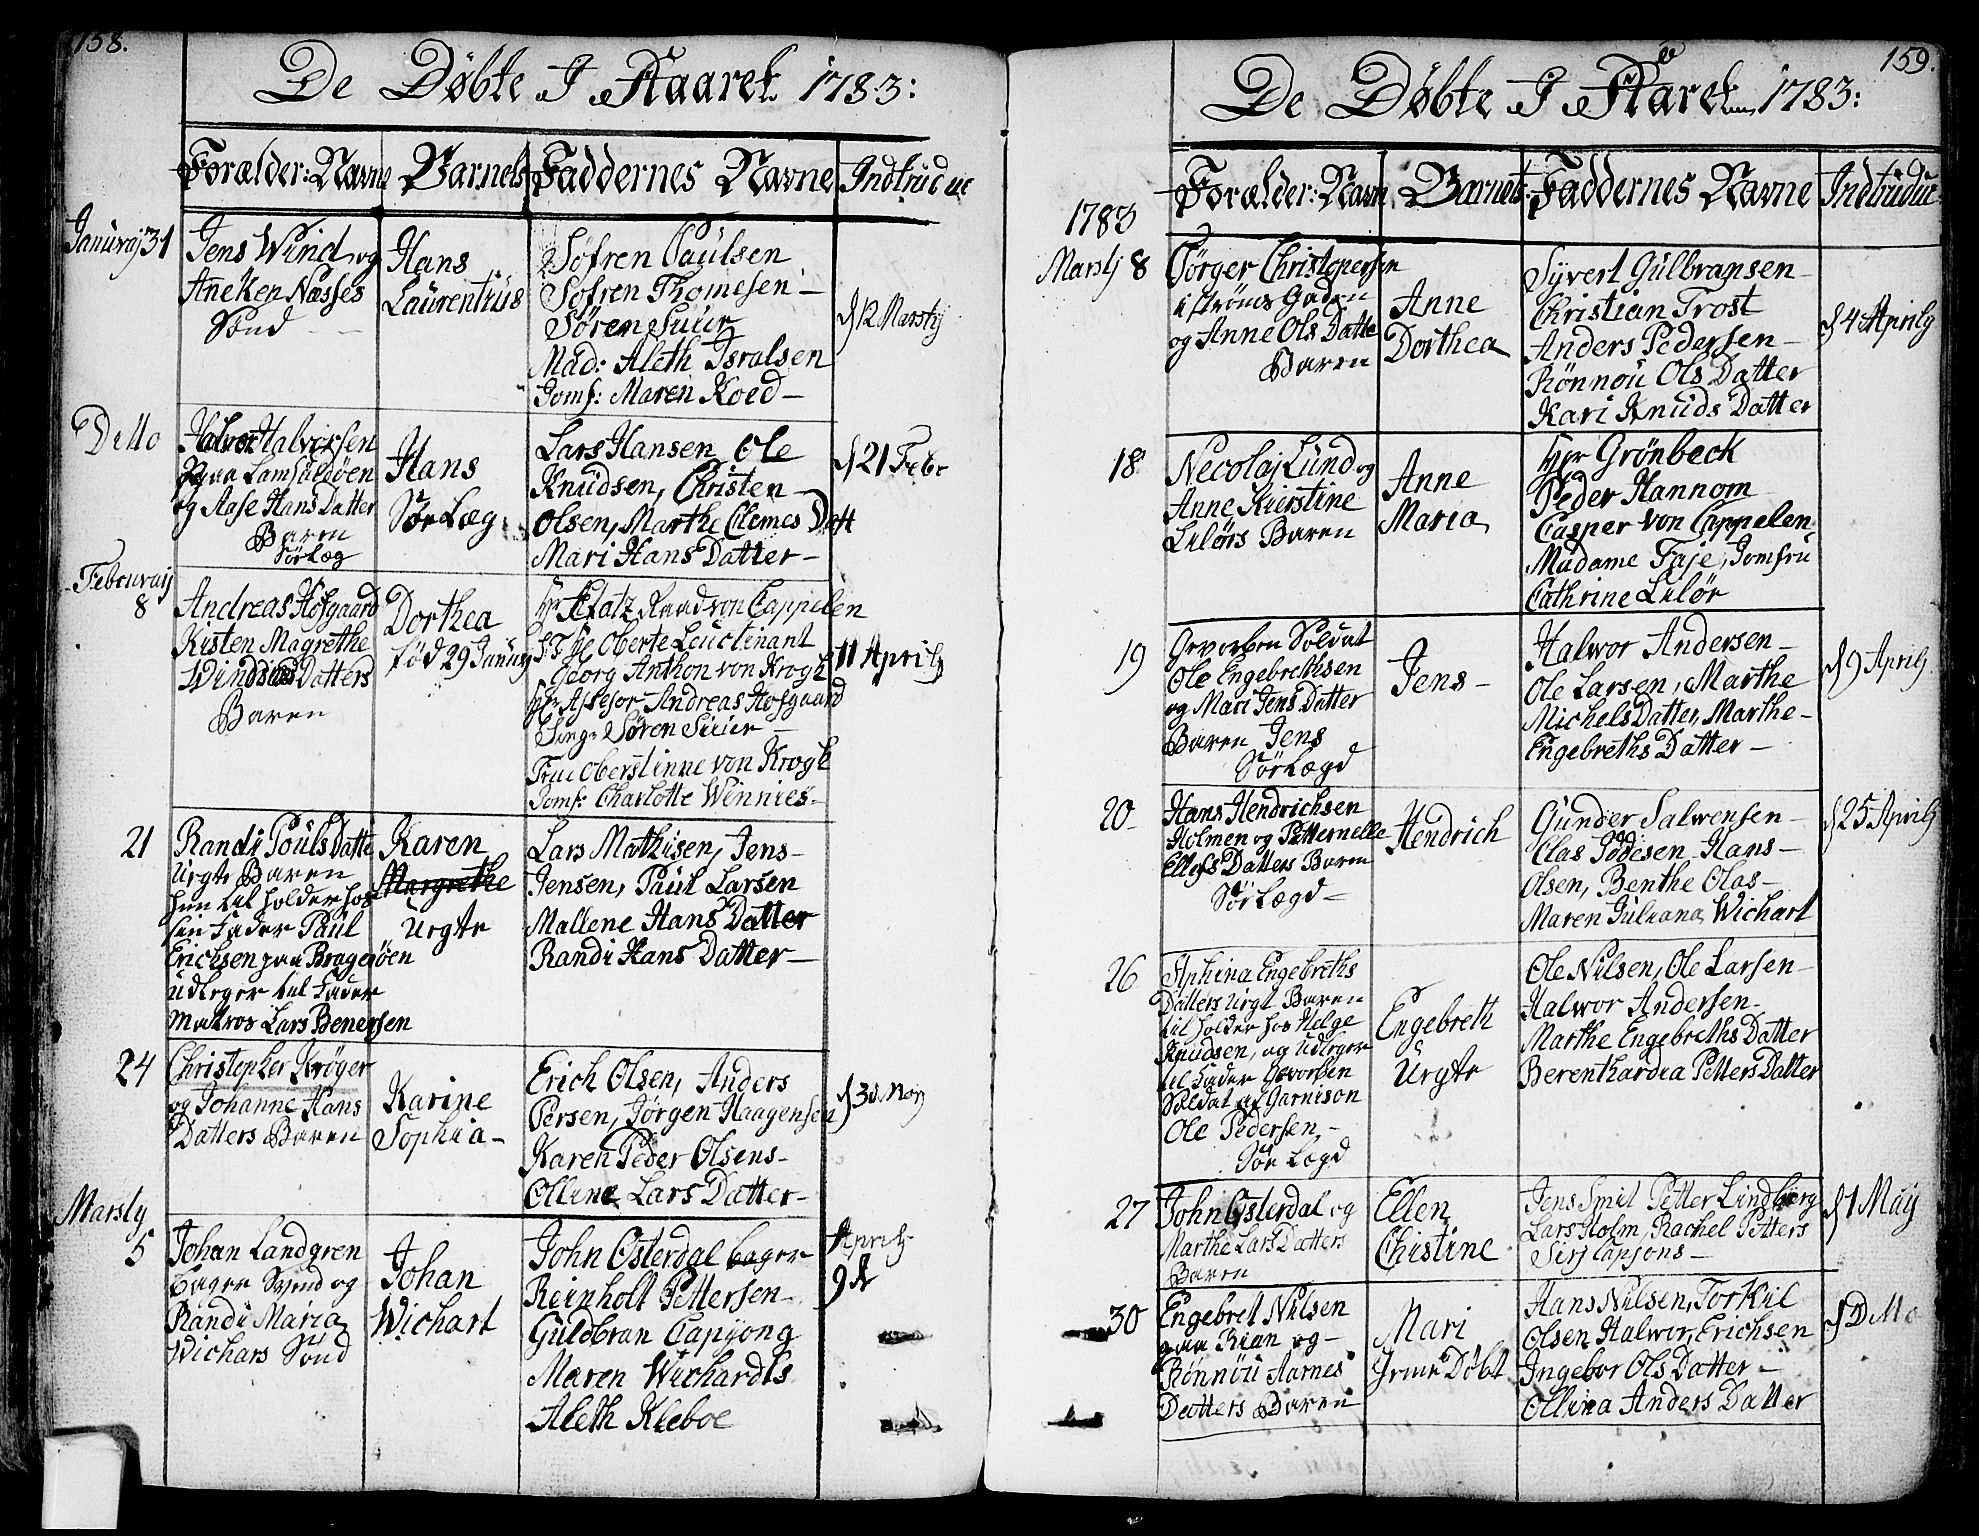 158.
De Døbte I Aaret 1783:
Forælder: Navne Barnets Faddernes Navne Indtrudue
Januarj 31
Jens Wind og
Aneken Næsses
Sønd
Hans
Laurentius
Søfren Paulsen
Sofren Thomesen
Søren Suur
Mad: Aleth Isralsen
Jomf: Maren Koed
d 12 Marsty
Ditto
Halvor Halvorsen
paa
og Aase Hans Datter
Baren
Sør Læg
Hans
Sør Læg
Lars Hansen Ole
Knudsen, Christen
Olsen, Marthe Clemes Datt
Mari Hans Datter
d 21 Febr
Februarij
8
Andreas Hofgaard
Kisten Magrethe
Datters
Baren
Dorthea
fød 29 Januarj
Hr Raad von Cappelen
Oberte Leuctinant
Georg Anthon von Krogh
Hr Assesor Andreas Hofgaard
Søren Suur
Frue Oberstinne von Krogh
Jomf: Charlotte Winnies
11 Aprily
21
Randi Pouls Datte
Urgte Baren
hun til holder hos
sin Fader Paul
Erichsen paa Bragerøen
udleger til Fader
Matros Lars Benersen
Karen
Margrethe
Urgte
Lars Mathisen, Jens
Jensen, Paul Larsen
Mallene Hans Datter
Randi Hans Datter
24
Christopher Krøger
og Johanne Hans
Datters Baren
Karine
Sophia
Erich Olsen, Anders
Persen, Jørgen Haagensen
Karen Peder Olsens
Olline Lars Datter
d 30 May
Marsty
5
Johan Landgren
Bager Svend og
Randi Maria
Wichars Sønd
Johan
Wichart
John Osterdal bager
Reinholt Pettersen
Guldbran Capjong
Maren Wichardts
Aleth Kleboe
Aprily
9 d
159.
De Døbte I Aaret 1783:
1783
Forælder: Navn Barnets Faddernes Navne Indtrudue
Marsty 8
Jørger Christopersen
i Strøms Gaden
og Anne Ols Datte
Baren
Anne
Dorthea
Syvert Gulbransen
Christian Trost
Anders Pedersen
Rønnou Ols Datter
Kari Knuds Datter
d 4 Aprily
18
Necolaj Lund og
Anne Kierstine
Leløis Baren
Anne
Maria
Hr Grönbeck
Peder Hannom
Casper von Cappelen
Madame Faje, Jomfru
Cathrine Leløv
19
Gevorben Soldat
Ole Engebrethsen
og Mari Jens Datter
Baren Jens
Sør Lægd
Jens
Halwor Andersen
Ole Larsen, Marthe
Michels Datter, Marthe
Engebreths Datter
d 9 Aprily
20
Hans Hendrichsen
Holmen og Petternelle
Ellefs Datters Baren
Sør Lægd
Hendrich
Gunder Salwensen
Clas Pedesen Hans
Olsen, Benthe Olas
Maren Juliana Wichart
d 25 Aprily
26
Engebreths
Datters Urgt Baren
til holder hos Helge
Knudsen, og udleger
til Fader Gevorben
Soldat af Garnison
Ole Pedersen
Sør Lægd
Engebreth
Urgte
Ole Nilsen, Ole Larsen
Halwor Andersen
Marthe Engebreths Datter
Berenthardia Petters Datter
27
John Osterdal og
Marthe Lars Datters
Baren
Ellen
Chistine
Jens Smit Petter Lindberg
Lars Holm, Rachel Petters
d 1 May
30
Engebret Nilsen
paa Rian og
Rønnou Aarnes
Datters Baren
Mari
Døbt
Hans Nilsen, Torkil
Olsen Halwor Erichsen
Ingebor Ols Datter
Ollina Anders Datter
d Ditto